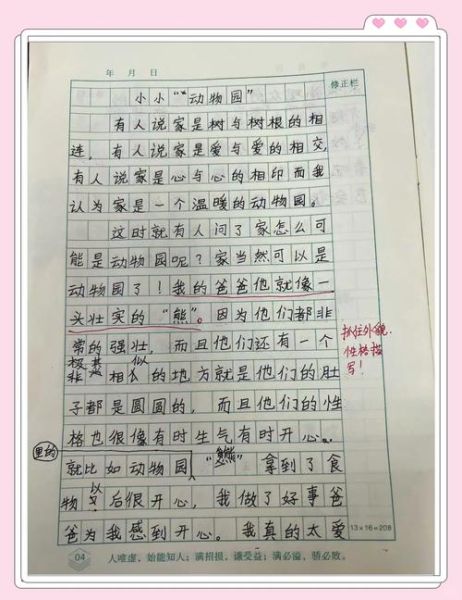 年 月 日
修正栏
小小“动物园”
有人说家是树与树根的相
连，有人说家是爱与爱的相交，
有人说家是心与心的相印而我
认为家是一个温暖的动物园。
这时就有人问了家怎么可
能是动物园呢？家当然可以是
动物园了！我的爸爸他就像一
头壮实的“熊”。因为他们都非
常的强壮，而且他们还有一个
极其相似的地方就是他们的肚
子都是圆圆的，而且他们的性
格也很像有时生气有时开心。
就比如动物园里的“熊”拿到了食
物以后很开心，我做了好事爸
爸为我感到开心。我真的太爱
抓住外貌、
性格描
写！
13×16=208
04
人唯虚，始能知人；满招损，谦受益；满必溢，骄必败。